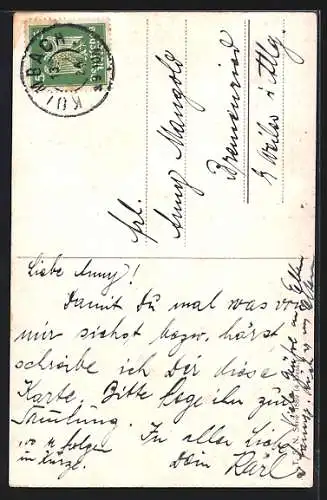 KULMBACH
Frl.
Anny Mangold
Bremenried
b/ Weiler i Allg.
Liebe Anny!
Damit Du mal was von
mir siehst bezw. hörst,
schreibe ich Dir diese
Karte. Bitte lege ihn zur
Sammlung.
In aller Liebe
Dein Karl
folgen
in Kürze.
Viele Grüße an Eltern